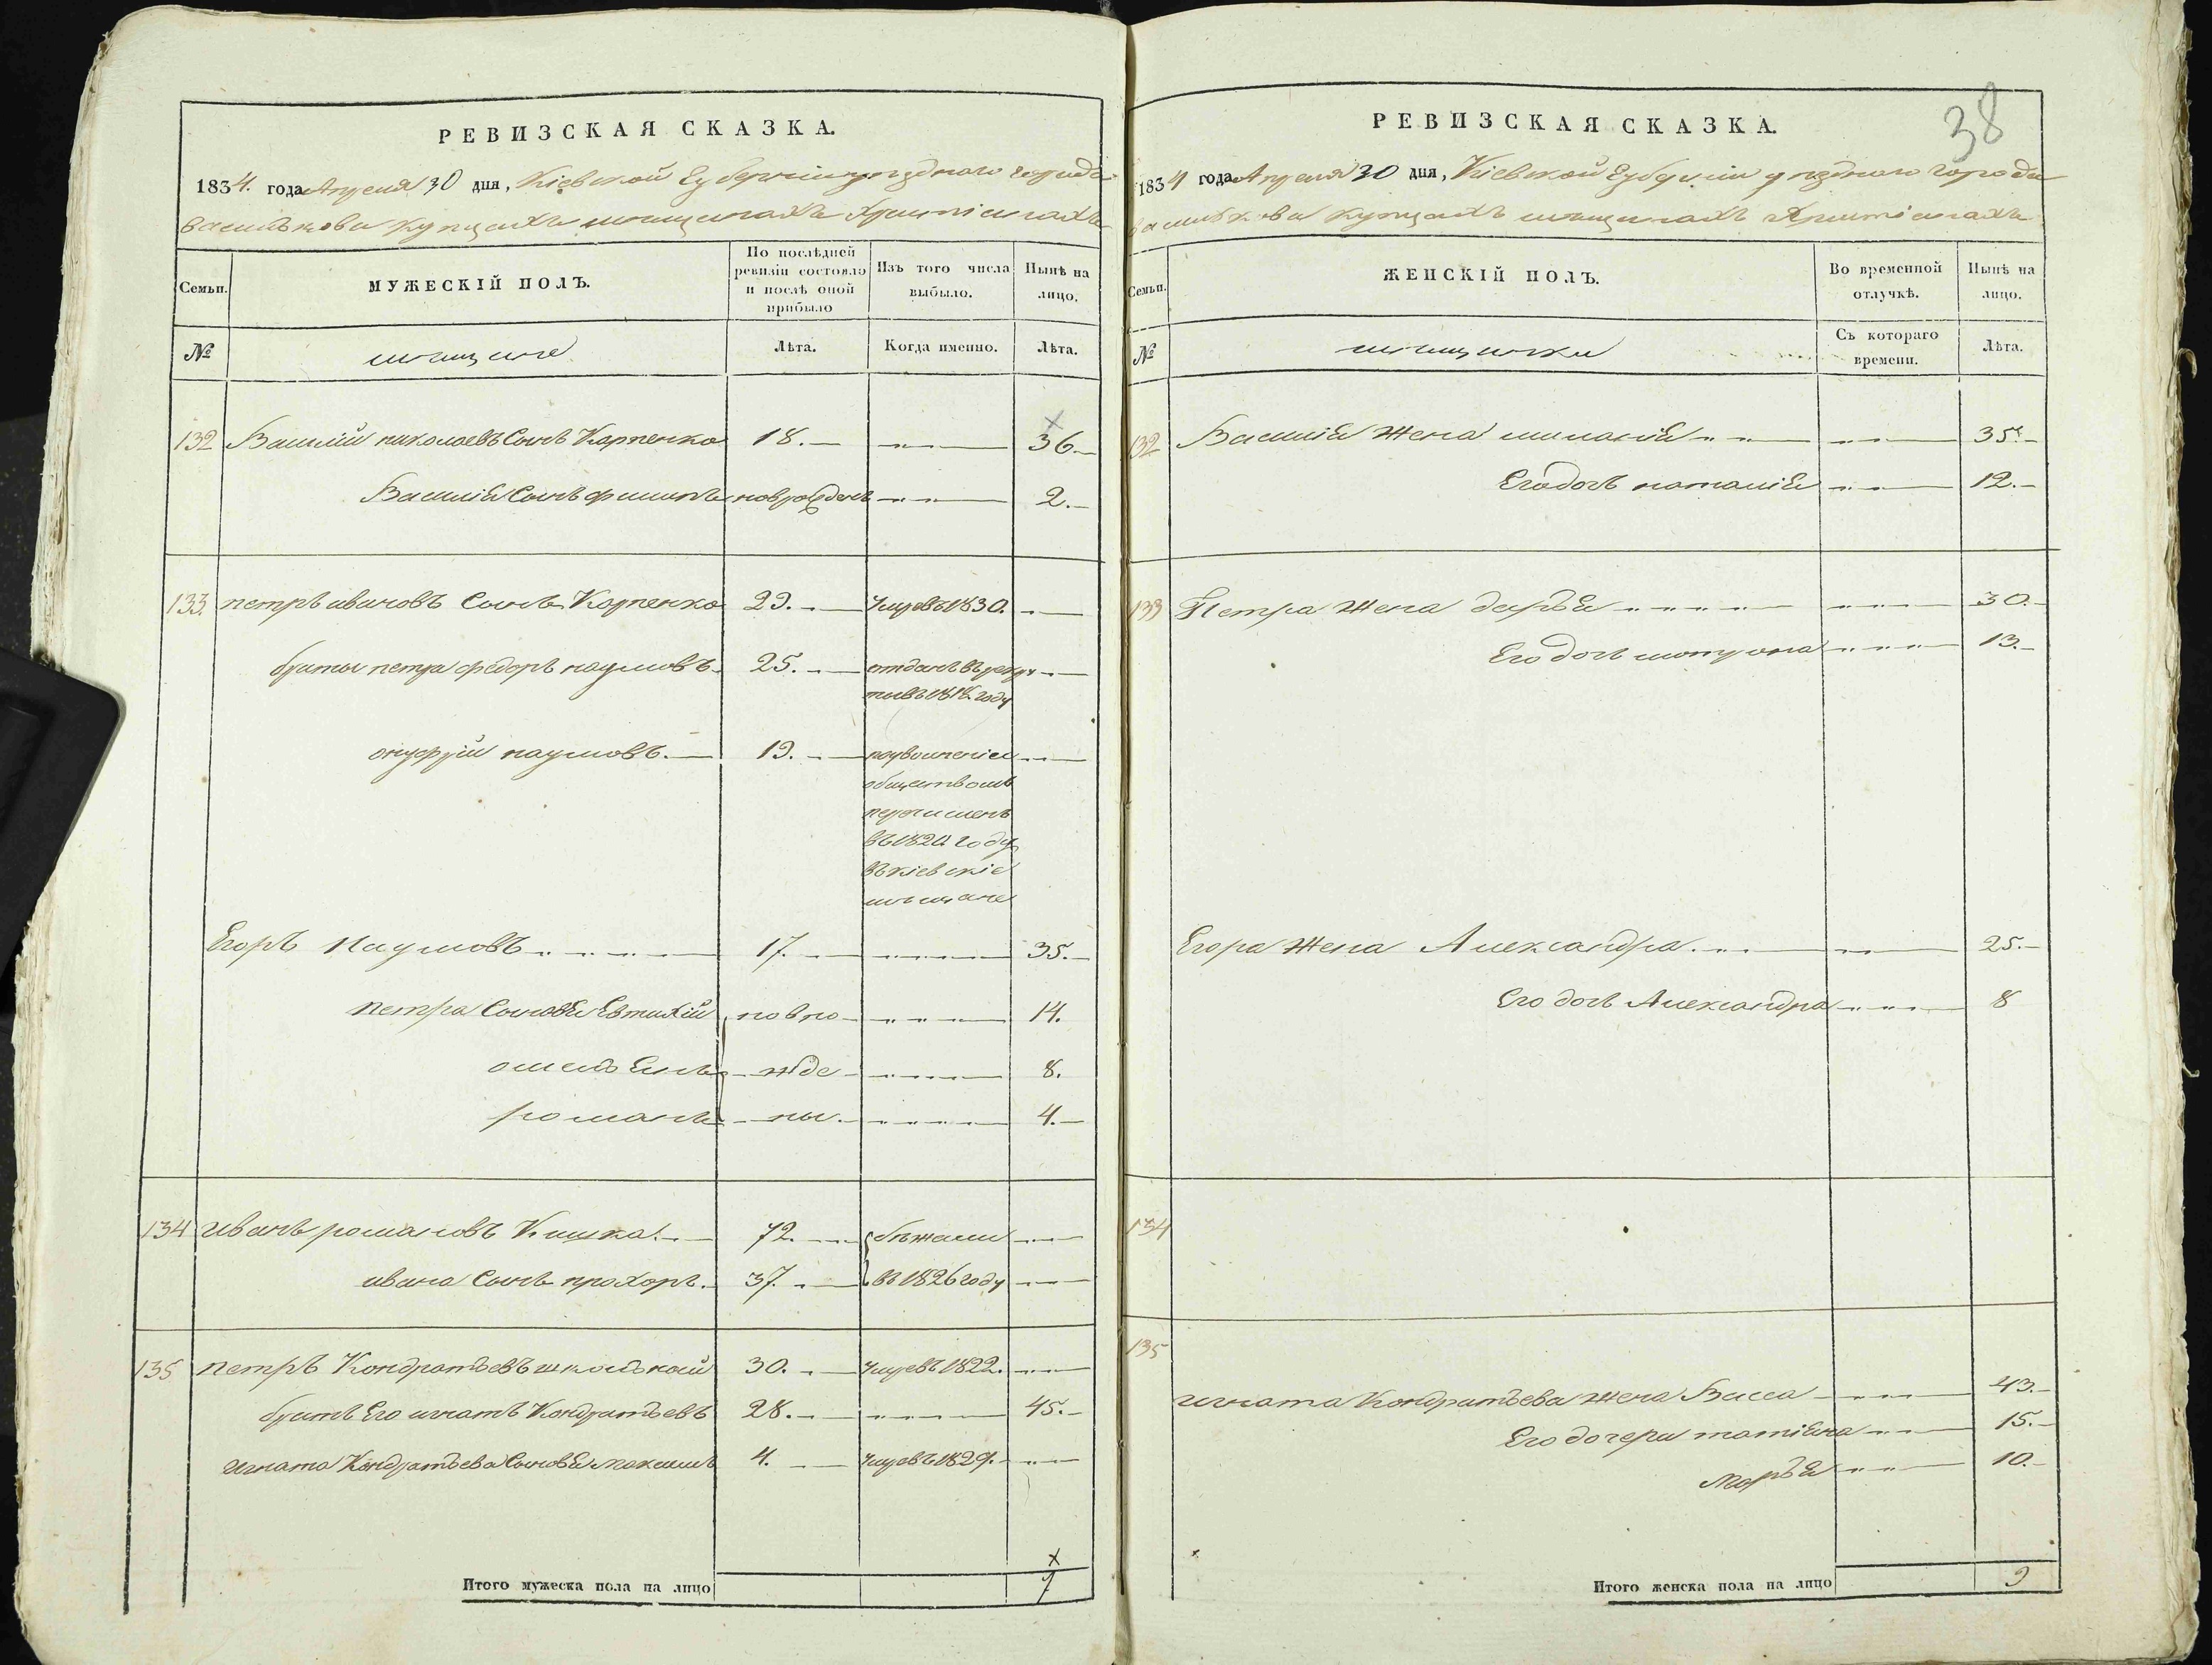 РЕВИЗСКАЯ СКАЗКА.
1834. года Апреля 30 дня, Кіевской Губерніи уезднаго города
василькова купцахъ мещанахъ христіанахъ
Семьи.
МУЖЕСКІЙ ПОЛЪ.
По послѣдней ревизіи состояло и послѣ оной прибыло
Изъ того числа выбыло.
Нынѣ на лицо.
№
мещане
Лѣта.
Когда именно.
Лѣта.
132 Василій николаевъ Сынъ Карпенко 18. 36
Василія Сынъ филипъ новрожденъ 2.
133 петръ ивановъ Сынъ Карпенко 29. Умре въ 1830.
братья петра федоръ наумовъ 25. отданъ въ рекру
ты въ 1818 году
онуфрій наумовъ. 19. поувольненіем
обществомъ
перечисленъ
въ 1820 году
въ кіевскіе
мещане
Егоръ Наумовъ 17. 35.
Петра Сыновья Евтихій новро 14.
омельянъ жде 8.
романъ ны. 4.
134 Иванъ романовъ Кишка. 72. бежали
ивана Сынъ прохоръ. 37. въ 1826 году
135 петръ Кондратьевъ школьной 30. Умре въ 1822.
братъ Его игнатъ Кондратьевъ 28. 45.
Игната Кондратьева Сыновья максимъ 4. Умре въ 1829.
Итого мужеска пола на лицо 7
38
РЕВИЗСКАЯ СКАЗКА.
1834 года Апреля 30 дня, Кіевской Губерніи уезднаго города
василькова купцахъ мещанахъ христіанахъ
Семьи.
ЖЕНСКІЙ ПОЛЪ.
Во временной отлучкѣ.
Нынѣ на лицо.
№
мещанки
Съ котораго времени.
Лѣта.
132 Василія Жена миланія 35.
Его дочь наталія 12.
133 Петра Жена дарья 30.
Его дочь мотрона 13.
Егора Жена Александра. 25.
Его дочь Александра 8
134
135
Игната Кондратьева Жена Васса 43.
Его дочери татіяна 15.
Марья 10.
Итого женска пола на лицо 9